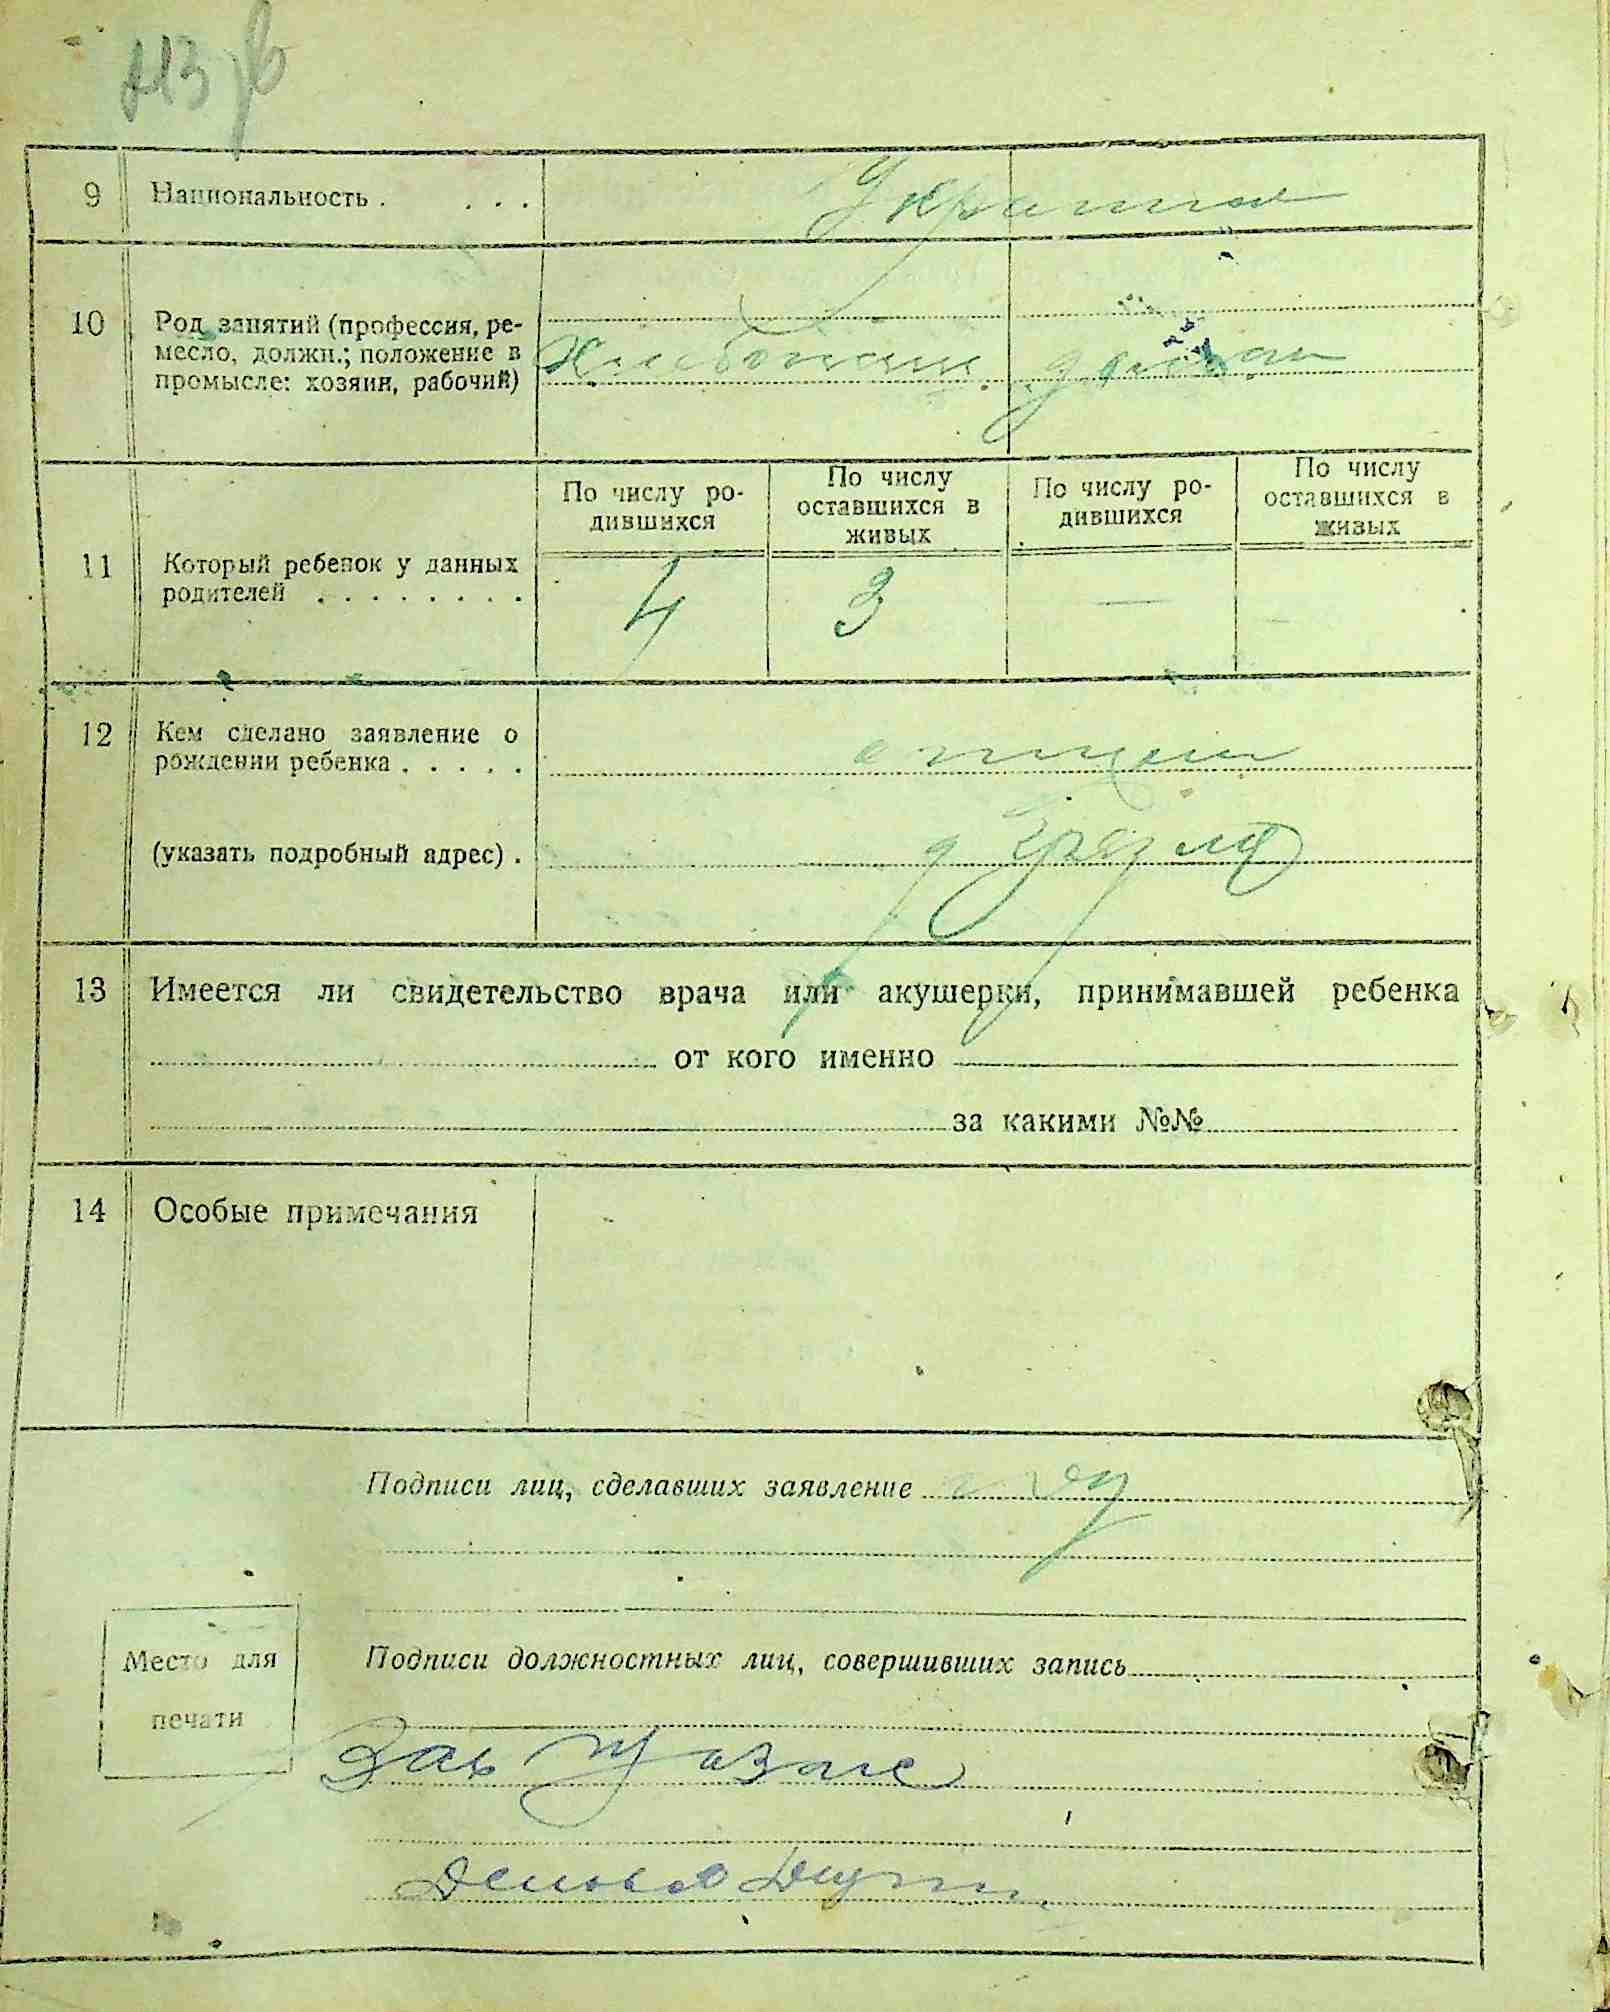 9 Национальность . . . .
10 Род занятий (профессия, ре-
месло, должн.; положение в
промысле: хозяин, рабочий)
По числу ро-
дившихся
По числу
оставшихся в
живых
По числу ро-
дившихся
По числу
оставшихся в
живых
11 Который ребенок у данных
родителей . . . . . . . .
4 3 — —
12 Кем сделано заявление о
рождении ребенка . . . . .
отцом
(указать подробный адрес) .
13 Имеется ли свидетельство врача или акушерки, принимавшей ребенка
от кого именно
за какими №№
14 Особые примечания
Подписи лиц, сделавших заявление
Место для
печати
Подписи должностных лиц, совершивших запись
Зав